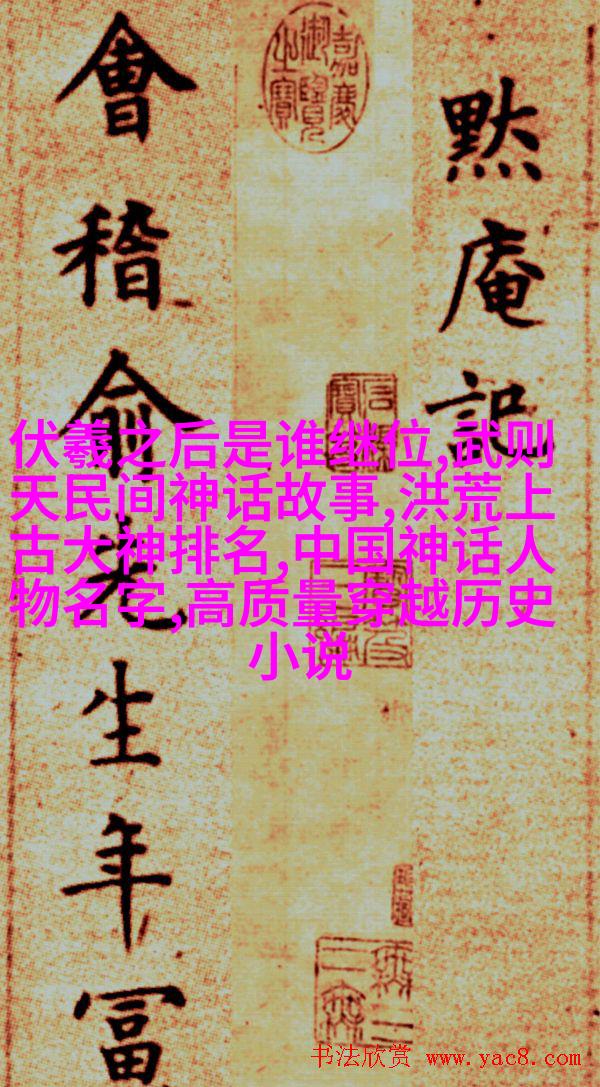 默庵記
嘉慶御覽之寶
會稽俞先生年冨
伏羲之后是谁继位,武则
天民间神话故事,洪荒上
古大神排名,中国神话人
物名字,高质量穿越历史
小说
书法欣赏 www.yac8.com